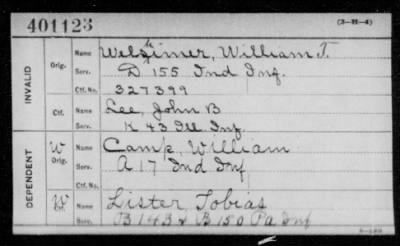 401123
(3-H-4)
INVALID
Orig.
Name Welzimer, William T.
Serv. D 155 Ind Inf.
Ctf. No. 327399
Ctf.
Name Lee, John B
Serv. K 43 Ill Inf.
DEPENDENT
W
Orig.
Name Camp, William
Serv. A 17 Ind Inf
Ctf. No.
W
Ctf.
Name Lister Tobias
Serv. B 143 & B 150 Pa Inf